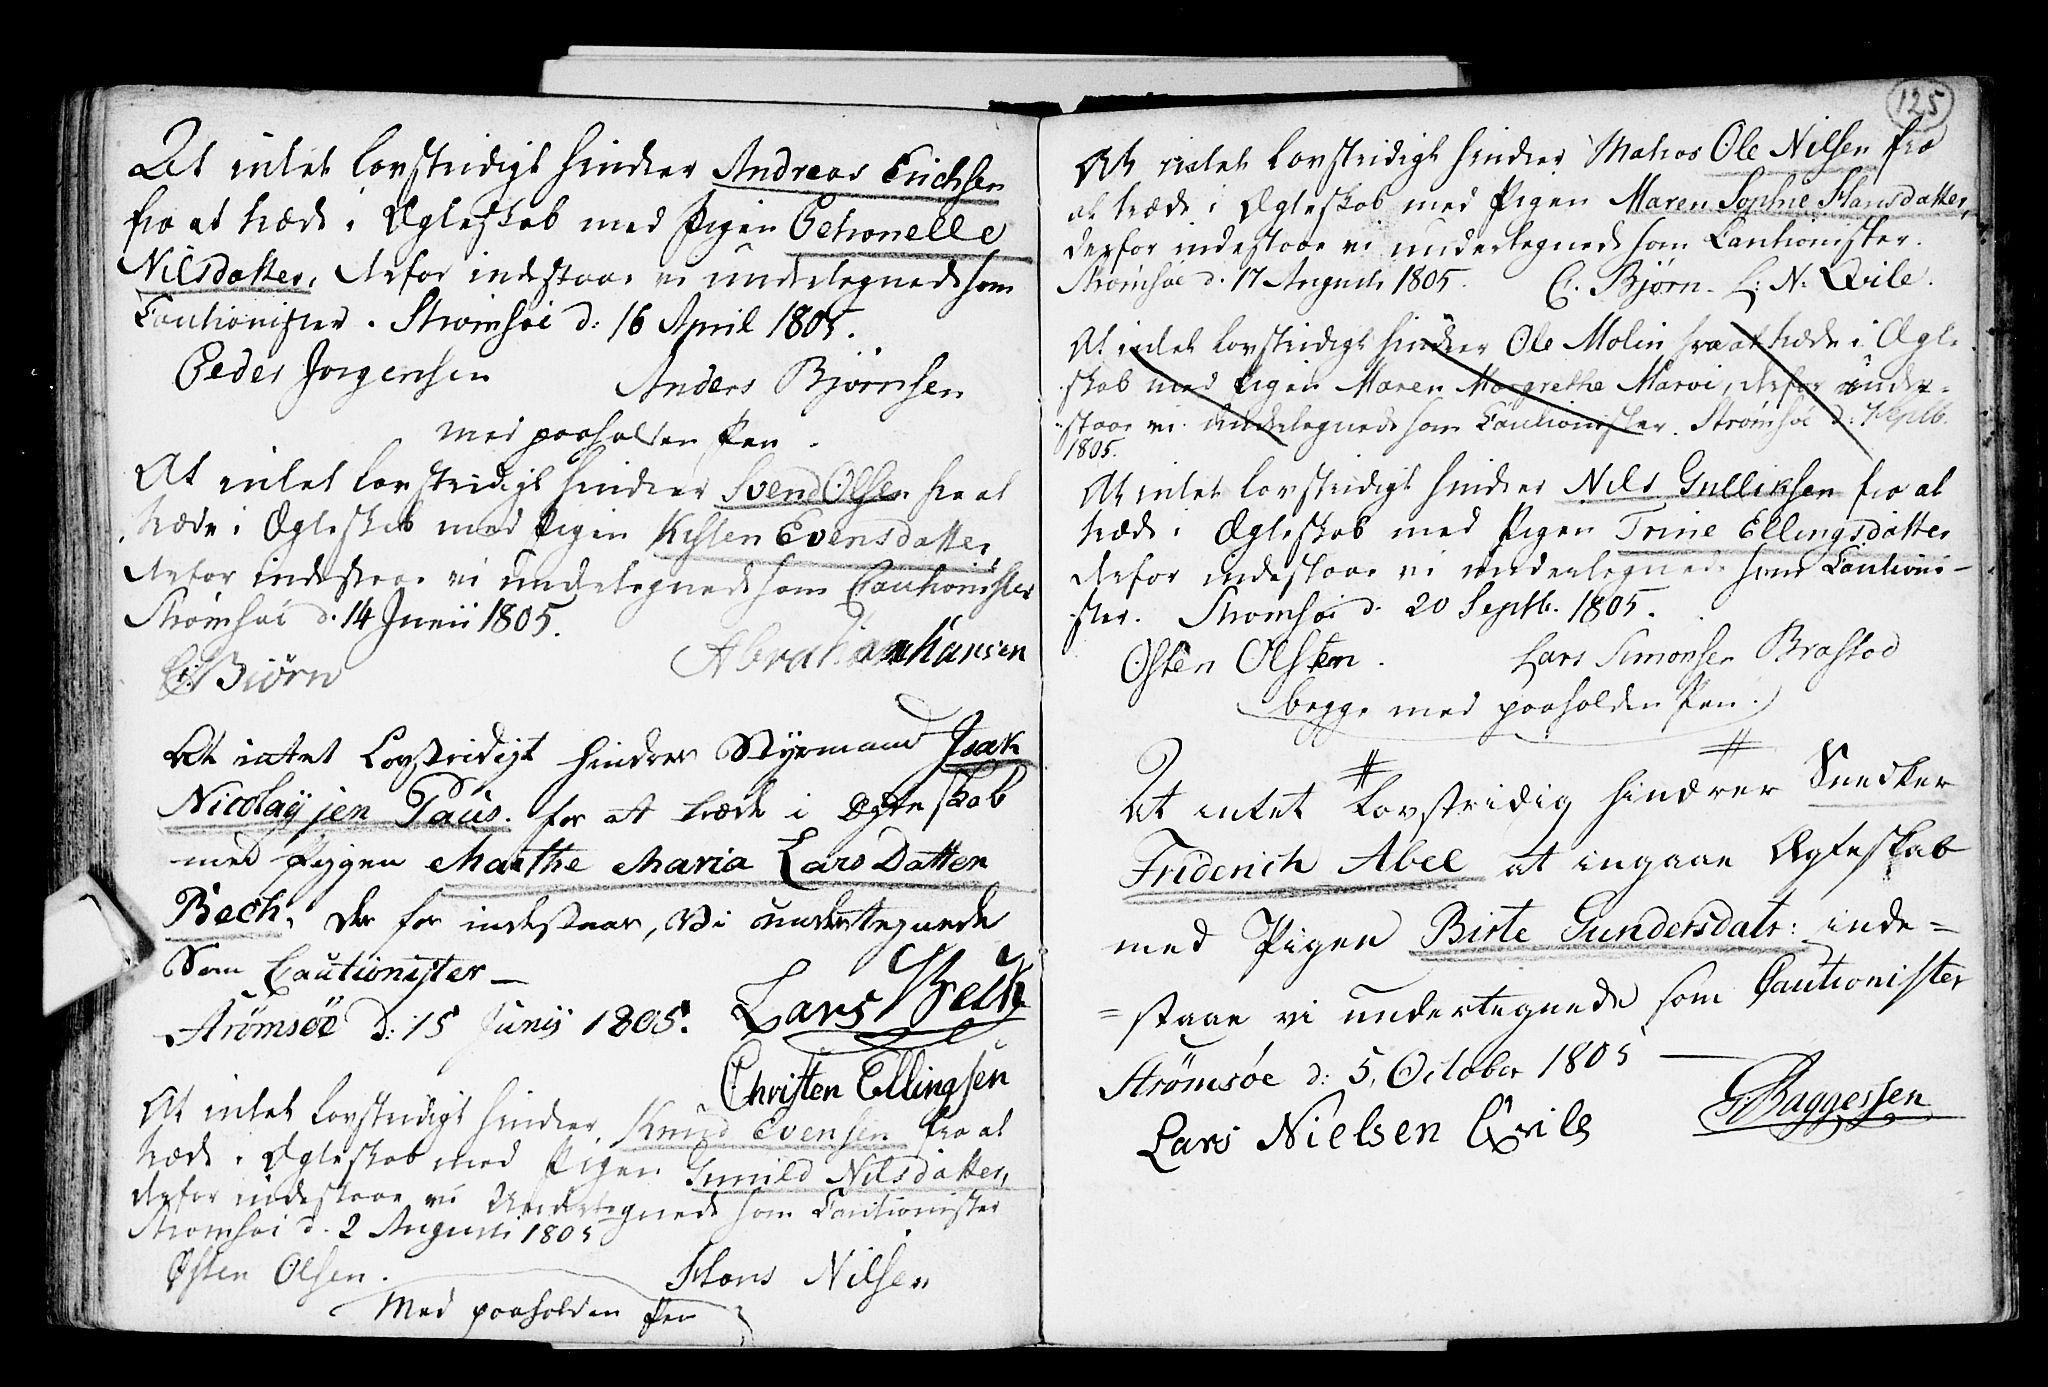 At intet lovstridigt hindrer Andreas Erichsen
fra at træde i Ægteskab med Pigen Petronelle
Nilsdatter, derfor indestaae vi undertegnede som
Cautionister. Strømsøe d: 16 April 1805.
Peder Jørgensen Anders Bjørnsen
med paaholden Pen.
At intet lovstridigt hindrer Svend Olsen fra at
træde i Ægteskab med Pigen Kisten Evensdatter,
derfor indestaae vi undertegnede som Cautionister
Strømsøe d. 14 Junii 1805.
C: Biørn Abraham Hansen
At intet Lovstridigt hindrer Styrmand Isak
Nicolaÿsen Paus. for at træde i Ægteskab
med Piigen Marthe Maria Lars Datter
Bech, der for indestaar, Vi undertegnede
Som Cautionister
Strømsøe d: 15 Junij 1805. Lars Bech
Christen Ellingsen
At intet lovstridigt hindrer Knud Evensen fra at
træde i Ægteskab med Pigen Gunild Nilsdatter,
derfor indestaae vi Undertegnede som Cautionister
Strømsøe d. 2 Augusti 1805
Østen Olsen. Hans Nilsen
Med paaholden Pen
125
At intet lovstridigt hindrer Matros Ole Nilsen fra
at træde i Ægteskab med Pigen Maren Sophie Hansdatter,
derfor indestaae vi undertegnede som Cautionister.
Strømsøe d. 17 Augusti 1805. C. Bjørn. L: N. Qvile.
At intet lovstridigt hindrer Ole Molin fra at træde i Ægte
skab med Pigen Maren Margrethe Maroi, derfor inde-
staae vi undertegnede som Cautionister. Strømsøe d: Septb.
1805.
At intet lovstridigt hindrer Nils Gulliksen fra at
træde i Ægteskab med Pigen Trine Ellingsdatter
derfor indestaae vi undertegnede som Cautioni-
ster. Strømsøe d. 20 Septb. 1805.
Østen Olsten. Lars Simonsen Brastad
begge med paaholden Pen.
At intet Lovstridig hindrer Snedker
Friderich Abel at ingaae Ægteskab
med Pigen Birte Gundersdatr: inde=
=staae vi undertegnede som Cautionister
Strømsøe d: 5, October 1805
Lars Nielsen Qvile G. Baggessen